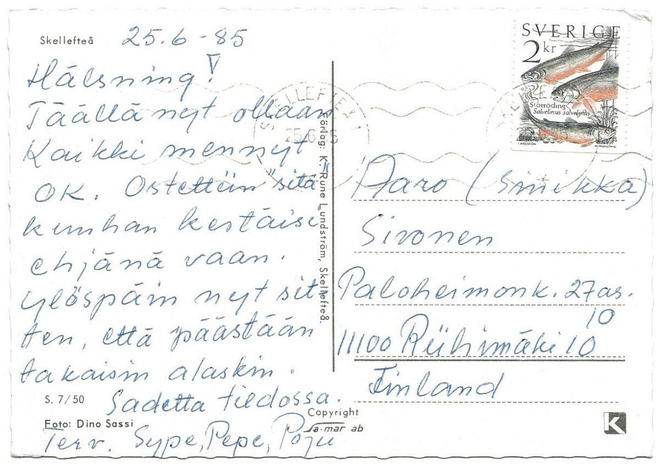 Skellefteå
25.6-85
Hälsning!
Täällä nyt ollaan
Kaikki mennyt
OK. Ostettiin "sitä"
kunhan kestäisi
ehjänä vaan.
Ylöspäin nyt sit
ten, että päästään
takaisin alaskin.
Sadetta tiedossa.
Terv. Sype, Pepe, Poju
S. 7/50
Foto: Dino Sassi
Förlag: K. Rune Lundström, Skellefteå
Copyright
sa-mar ab
SVERIGE
2 kr
Storröding
Salvelinus salvelinus
SKELLEFTEÅ 1
25.6
Aaro (Sinikka)
Sivonen
Paloheimonk. 27 as.
10
11100 Riihimäki 10
Finland
K